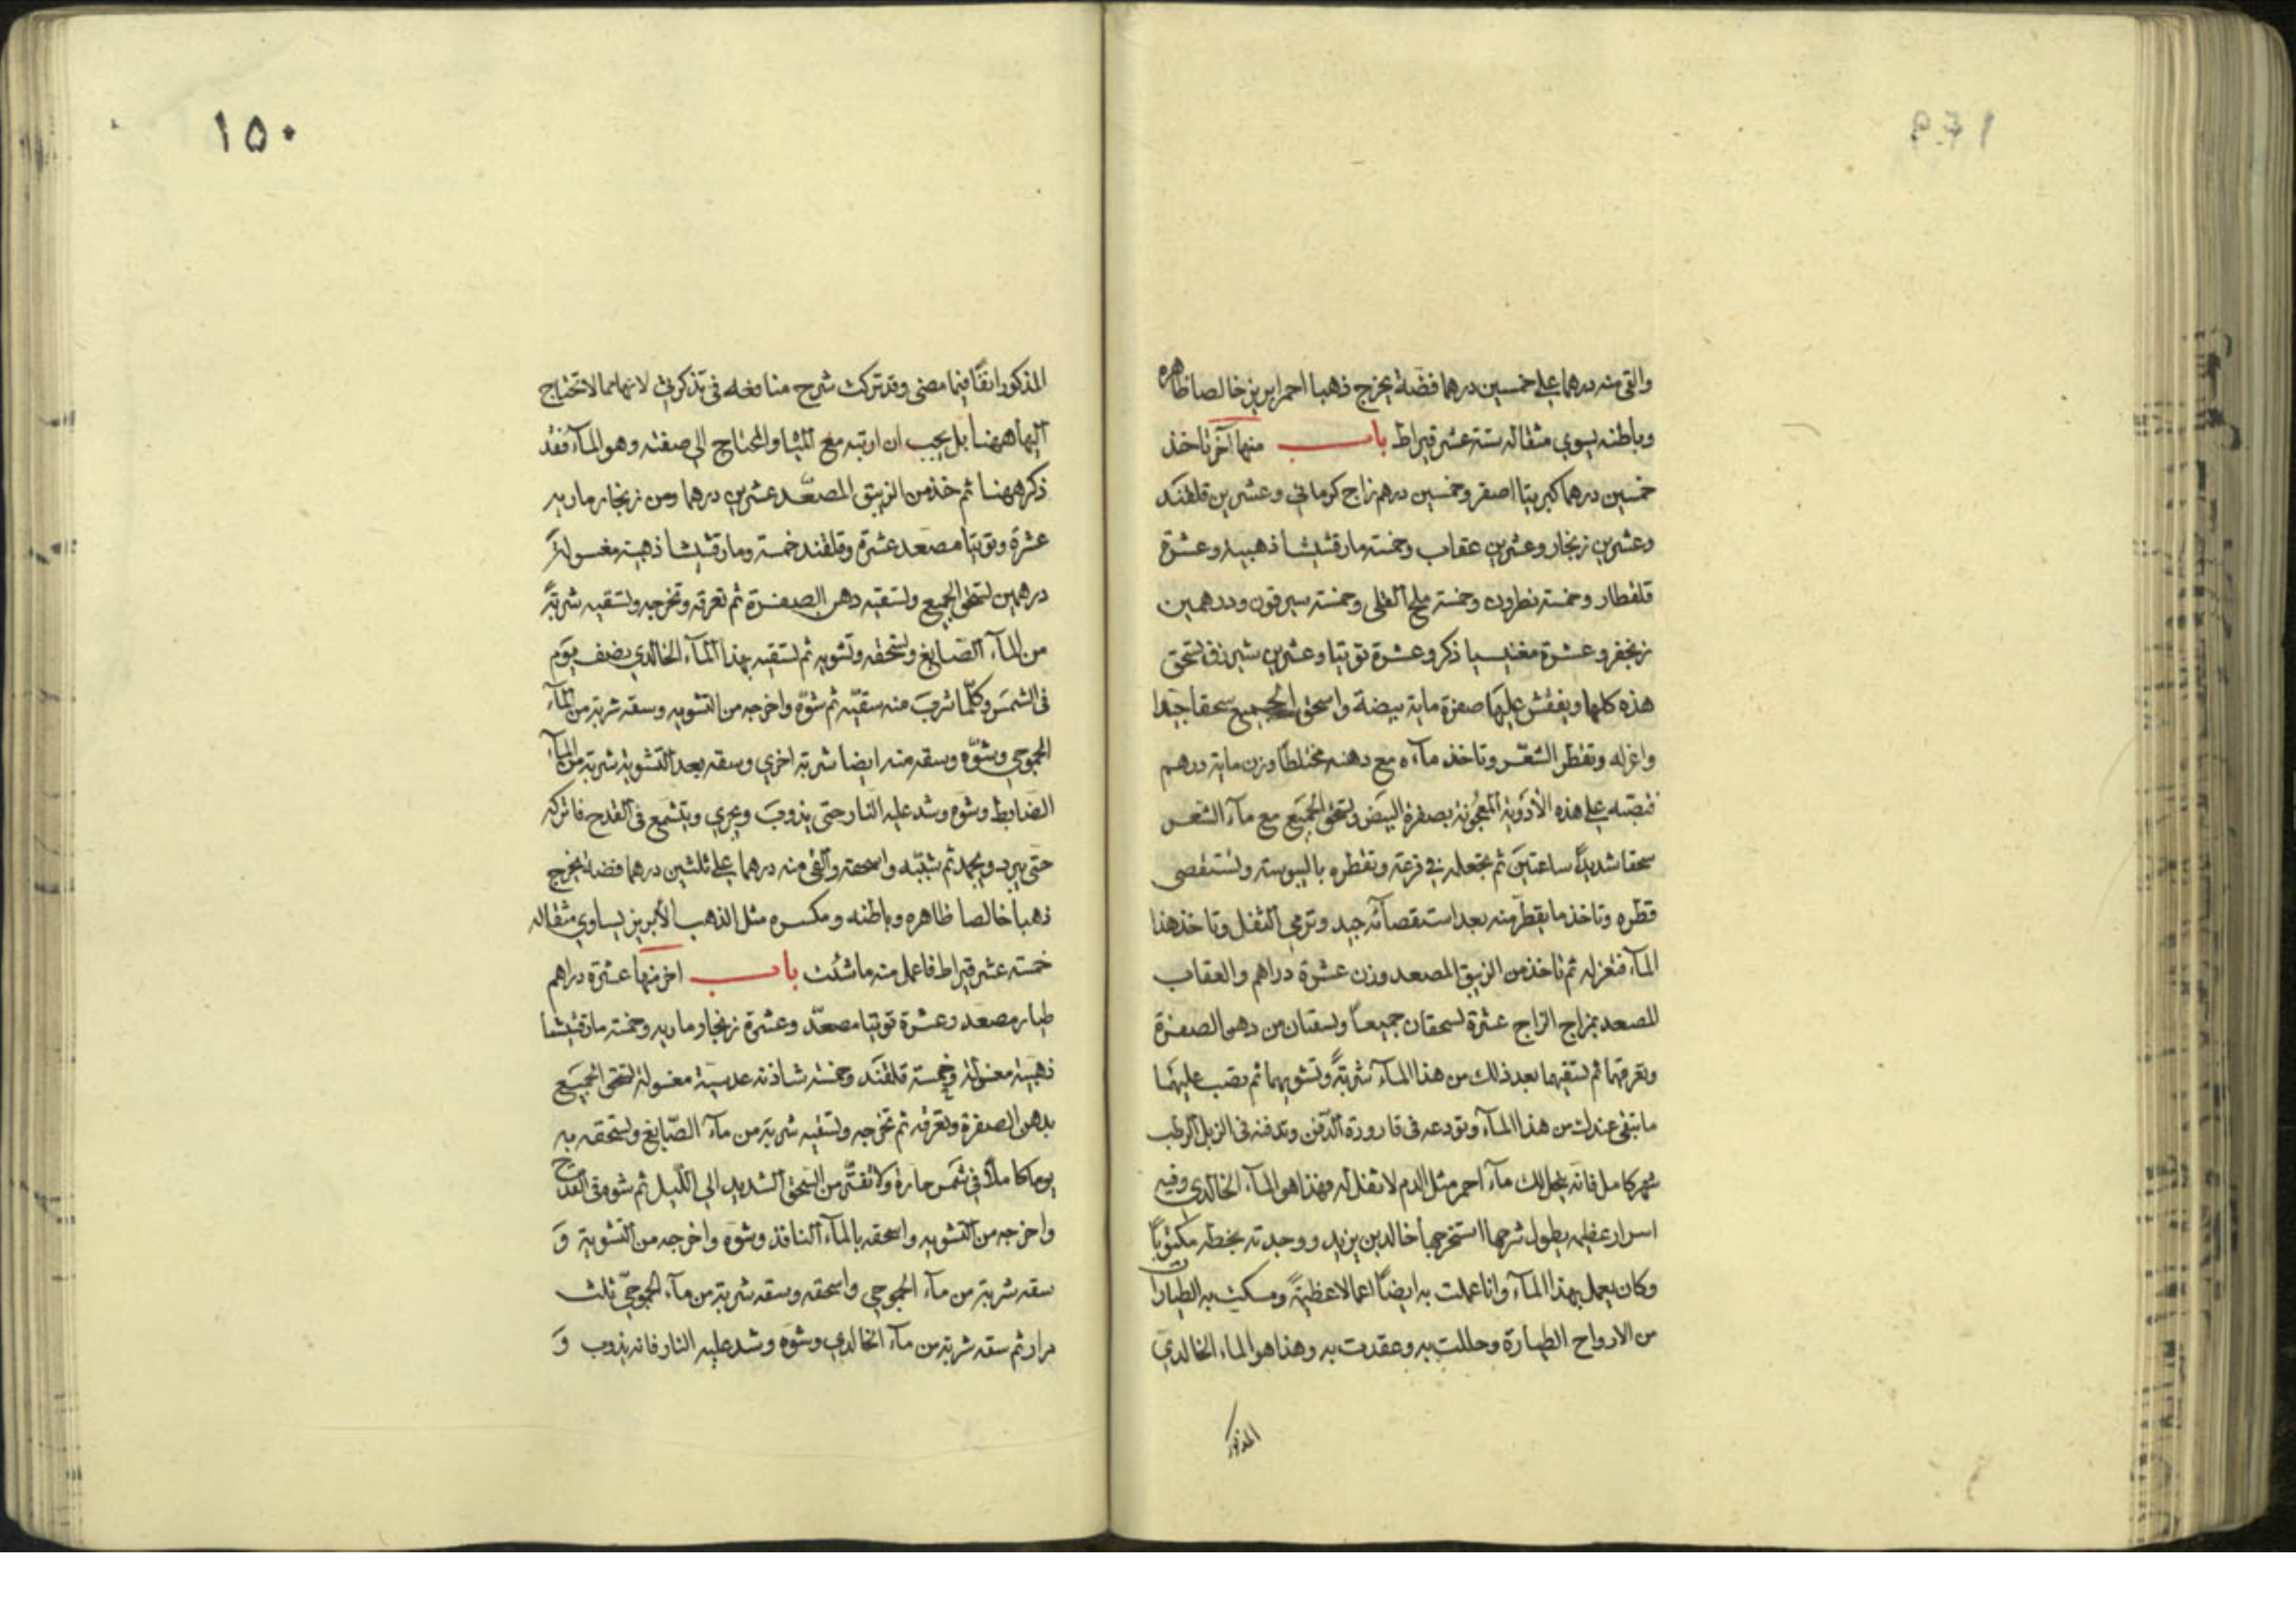 والقي منه درهما علي خمسين درهما فضة يخرج ذهبا احمر ابريز خالصا ظاهره
وباطنه يسوي مثقاله ستة عشر قيراط باب منها آخر تاخذ
خمسين درهما كبريتا اصفر وخمسين درهم زاج كرماني وعشرين قلقند
وعشرين زنجار وعشرين عقاب وخمسة مارقشيشا ذهبيه وعشرة
قلقطار وخمسة نطرون وخمسة ملح القلي وخمسة سيرقون ودرهمين
زنجفر وعشرة مغنيسيا ذكر وعشرة توتيا وعشرين شيرزق تسحق
هذه كلها ويفقش عليها صفرة ماية بيضة واسحق الجميع سحقا جيدا
واعزله وتقطر الشعر وتاخذ مآءه مع دهنه مختلطا وزن ماية درهم
فتصبّه علي هذه الأدوية المعجونة بصفرة البيض وتسحق الجميع مع مآء الشعر
سحقا شديدًا ساعتين ثم تجعله في قرعة وتقطره باليبوسة وتستقصي
قطره وتاخذ ما يقطر منه بعد استقصآئه جيد وترمي الثفل وتاخذ هذا
المآء فتعزله ثم تاخذ من الزيبق المصعد وزن عشرة دراهم والعقاب
المصعد بمزاج الزاج عشرة تسحقان جميعاً وتسقان من دهن الصفرة
وتعرقهما ثم تسقيهما بعد ذلك من هذا المآء شربةً وتشويهما ثم تصب عليهما
ما تبقي عندك من هذا المآء وتودعه في قارورة الدّفن وتدفنه في الزبل الرطب
شهر كامل فانّه ينحل لك مآء احمر مثل الدم لا ثفل له فهذا هو المآء الخالدي وفيه
اسرار عظيمه يطول شرحها استخرجها خالد بن يزيد ووجدته بخطه مكتوبًا
وكان يعمل بهذا المآء وانا عملت به ايضاً اعمالا عظيمةً ومسكت به الطيارات
من الارواح الطيارة وحللت به وعقدت به وهذا هو المآء الخالدي
المذكور
١٥٠
المذكور انفًا فيما مضى وقد تركت شرح منافعه في تذكرتي لانها مما لا تحتاج
اليها ههنا بل يجب ان ارتبه مع الشيا والمحتاج الي صفته وهو المآء فقد
ذكر ههنا ثم خذ من الزيبق المصعّد عشرين درهما ومن زنجار ماريه
عشرة وتوتيا مصعد عشرة وقلقند خمسة ومارقشيشا ذهبية مغسولةً
درهمين تسحق الجميع وتسقيه دهن الصفرة ثم تعرقه وتخرجه وتسقيه شربةً
من المآء الصّابغ وتسحقه وتشويه ثم تسقيه بهذا المآء الخالدي نصف يوم
في الشمس وكلّما شرب منه سقيّه ثم شوّه واخرجه من التشويه وسقه شربة من المآء
الحجوجي وشوّه وسقه منه ايضا شربة اخري وسقه بعد التشوية شربة من المآء
الضابط وشوّه وشد عليه النار حتى يذوب ويجري ويتشمع في القدح فاتركه
حتى يبرد ويجمد ثم شببّه واسحقه والقي منه درهما علي ثلثين درهما فضة يخرج
ذهبا خالصا ظاهره وباطنه ومكسره مثل الذهب الأبريز يساوي مثقاله
خمسة عشر قيراط فاعمل منه ما شئت باب اخر منها عشرة دراهم
طيار مصعد وعشرة توتيا مصعّد وعشرة زنجار ماريه وخمسة مارقشيشا
ذهبية مغسولة وخمسة قلقند وخمسة شاذنه عدسية مغسولة تسحق الجميع
بدهن الصفرة وتعرقه ثم تخرجه وتسقيه شربة من مآء الصّابغ وتسحقه به
يوما كاملاً في شمس حارة ولا تفتّر من السحق الشديد الي اللّيل ثم شوه في القدح
واخرجه من التشويه واسحقه بالمآء النافذ وشوّه واخرجه من التشوية وَ
سقه شربة من مآء الحجوجي واسحقه وسقه شربة من مآء الحجوجيّ ثلث
مرار ثم سقه شربة من مآء الخالدي وشوّه وشد عليه النار فانه يذوب وَ